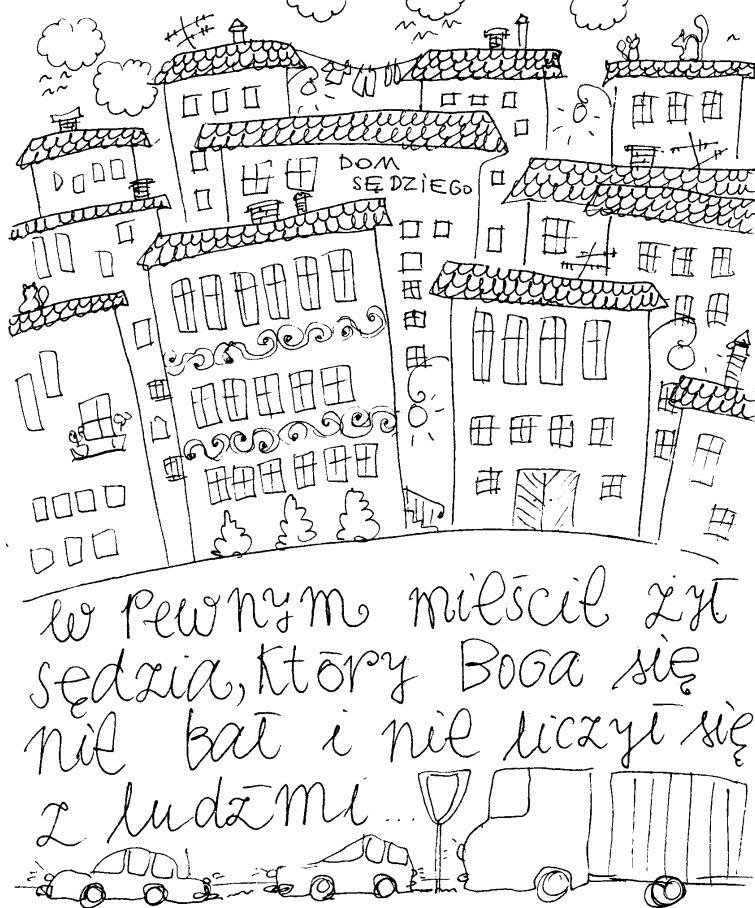 DOM
SĘDZIEGO
w pewnym mieście żył
sędzia, który Boga się
nie bał i nie liczył się
z ludźmi...